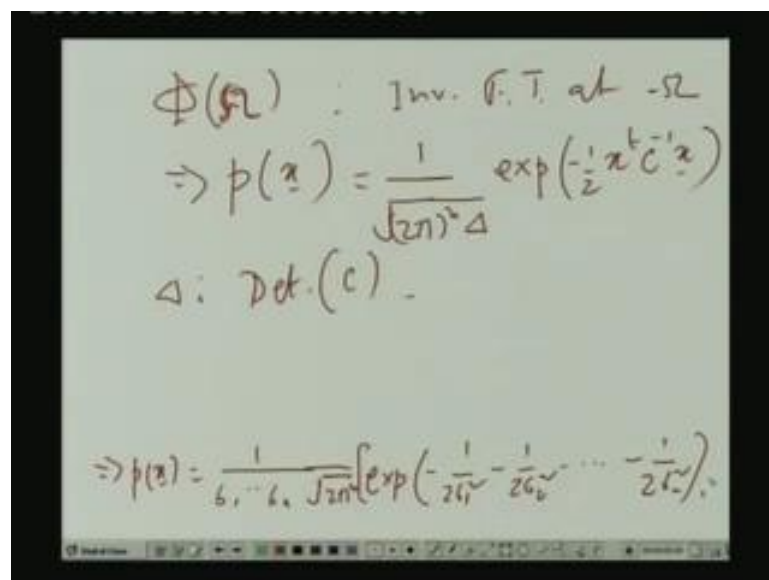 Φ(Ω) : Inv. F.T. at -Ω
⇒ p(x) = 1/√(2π)ⁿ Δ exp(-1/2 xᵗ C⁻¹ x)
Δ: Det.(C).
⇒ p(x) = 1/σ₁ ⋯ σₙ √2πⁿ [exp(-1/2σ₁² - 1/2σ₂² - ⋯ - 1/2σₙ²).